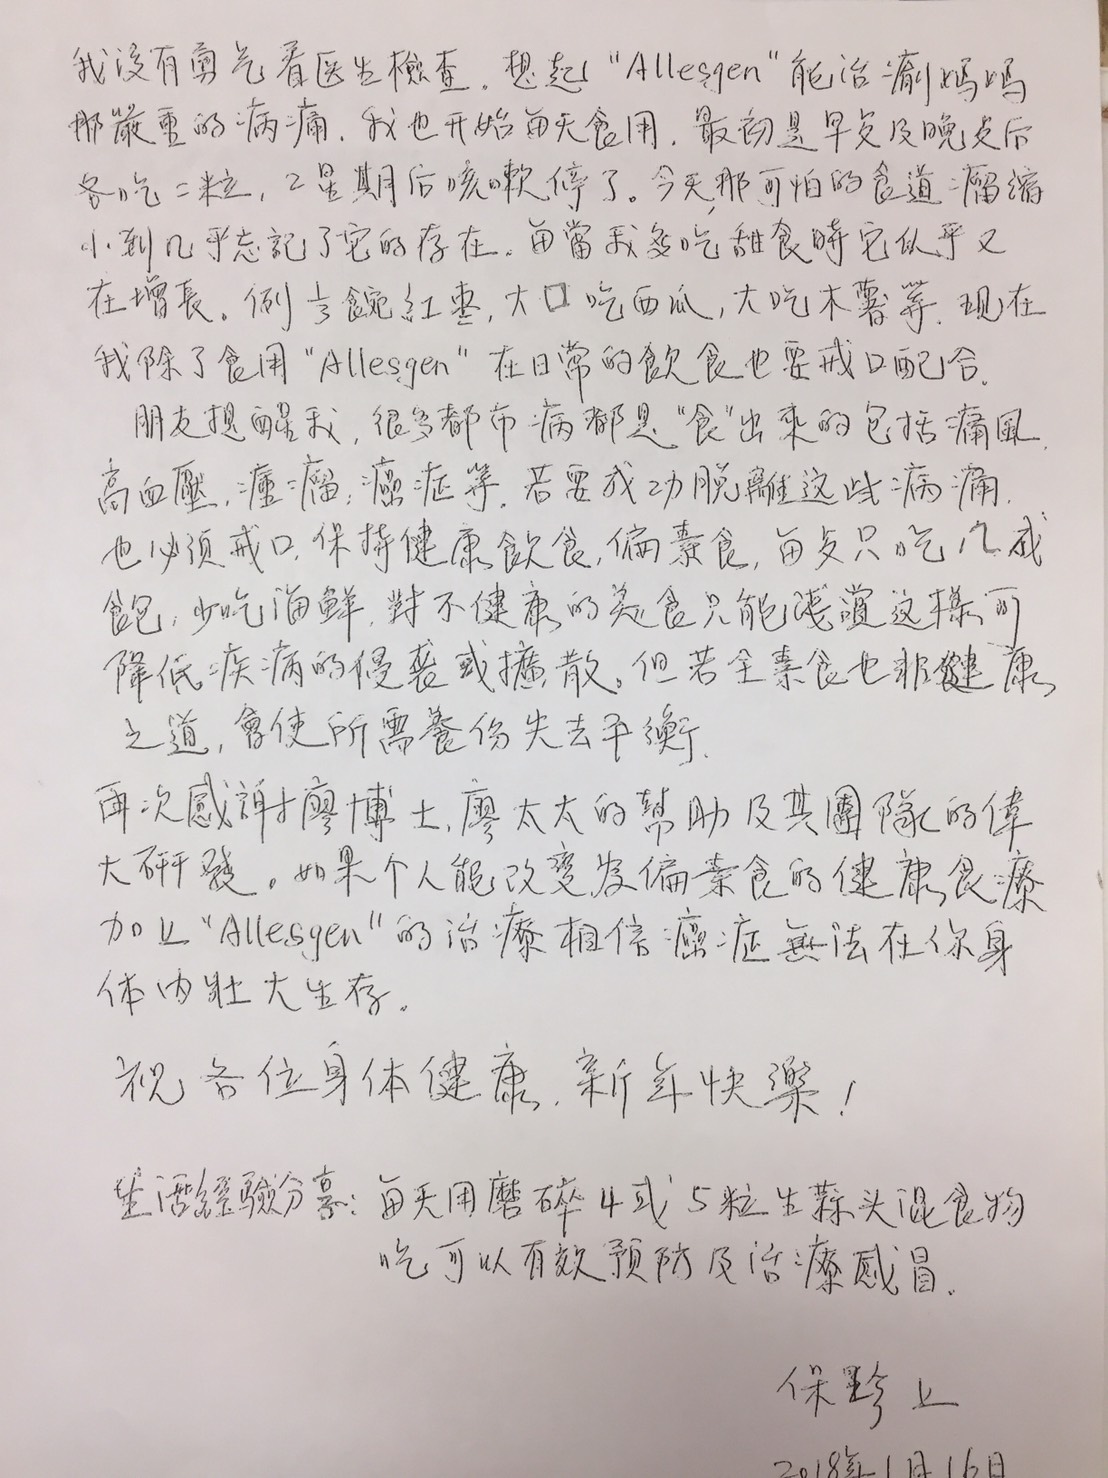 我没有勇气看医生檢查。想起 "Allesgen" 能治癒媽媽
那嚴重的病痛，我也开始每天食用，最初是早负及晚负后
各吃二粒，2星期后咳嗽停了。今天那可怕的食道瘤縮
小到几乎忘記了它的存在。每當我多吃甜食時它似乎又
在增長。例 紅枣，大口吃西瓜，大吃木薯等。现在
我除了食用 "Allesgen" 在日常的飲食也要戒口配合。
朋友提醒我，很多都市病都是"食"出來的包括痛風
高血壓，瘇瘤，癌症等。若要成功脱離这些病痛，
也必须戒口，保持健康飲食，偏素食，每负只吃几成
飽，少吃海鮮，對不健康的美食只能浅嚐这樣可
降低疾病的侵襲或擴散。但若全素食也非健康
之道，會使所需養份失去平衡。
再次感謝廖博士，廖太太的幫助及其團隊的偉
大研發。如果个人能改變为偏素食的健康食療
加上 "Allesgen" 的治療相信癌症無法在你身
体内壯大生存。
祝各位身体健康，新年快樂！
生活經驗分享：每天用磨碎4或5粒生蒜头混食物
吃可以有效预防及治療感冒。
保 上
2018年1月16日